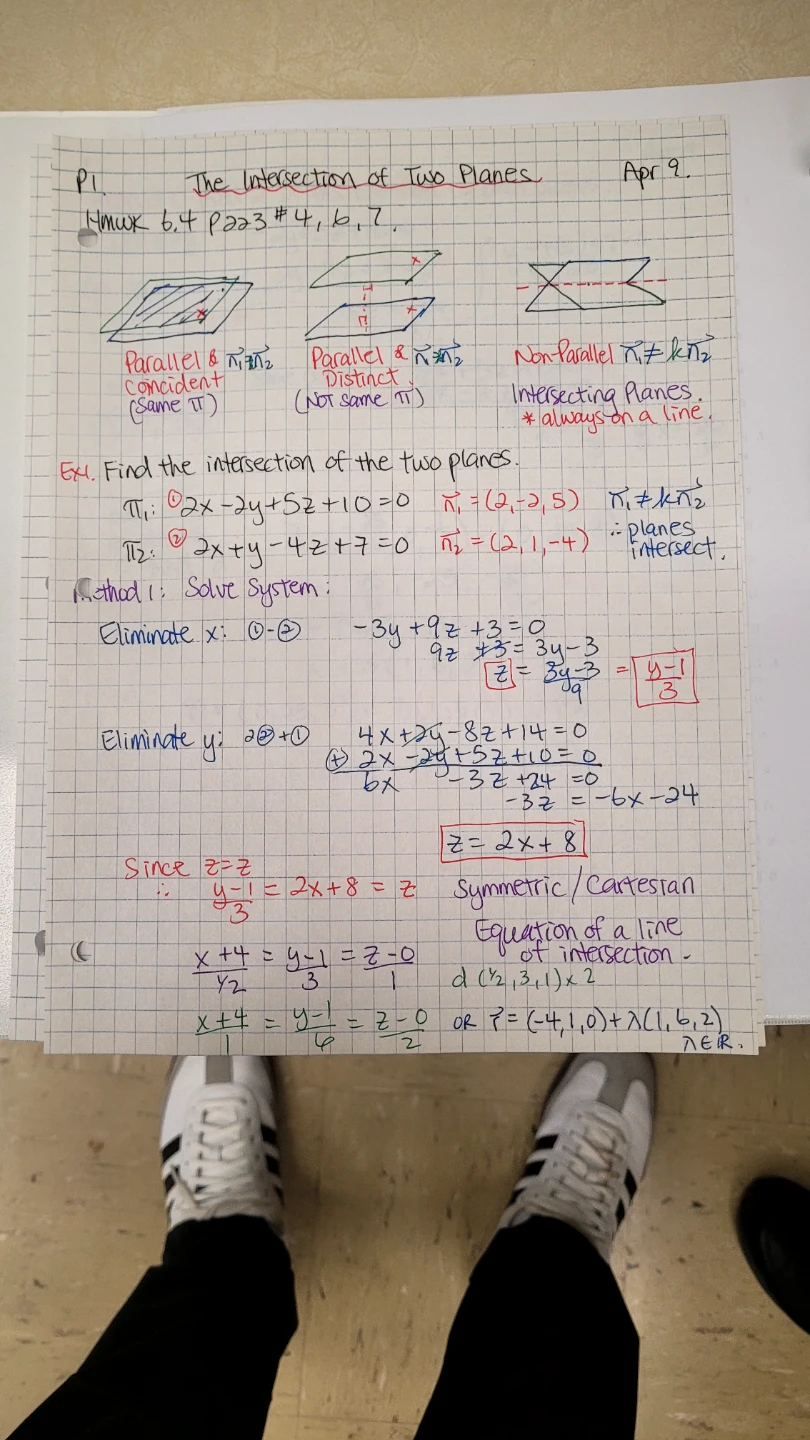 P1. The Intersection of Two Planes Apr 9.
Hmwk 6.4 p223 # 4, 6, 7.
Parallel & n₁=n₂
Coincident
(Same π)
Parallel & n₁=n₂
Distinct.
(Not same π)
Non-Parallel n₁≠kn₂
Intersecting Planes.
* always on a line.
Ex1. Find the intersection of the two planes.
π₁: ① 2x-2y+5z+10=0 n₁=(2,-2,5) n₁≠kn₂
π₂: ② 2x+y-4z+7=0 n₂=(2,1,-4) ∴ planes
intersect.
Method 1: Solve System:
Eliminate x: ①-② -3y+9z+3=0
9z +3 = 3y-3
z = 3y-3/9 = y-1/3
Eliminate y: 2②+① 4x+2y-8z+14=0
(+) 2x-2y+5z+10=0
6x -3z+24=0
-3z = -6x-24
z = 2x+8
Since z=z
∴ y-1/3 = 2x+8 = z Symmetric/Cartesian
Equation of a line
of intersection -
x+4/½ = y-1/3 = z-0/1 d (½,3,1)x2
x+4/1 = y-1/6 = z-0/2 OR r=(-4,1,0)+λ(1,6,2)
λ∈ℝ.